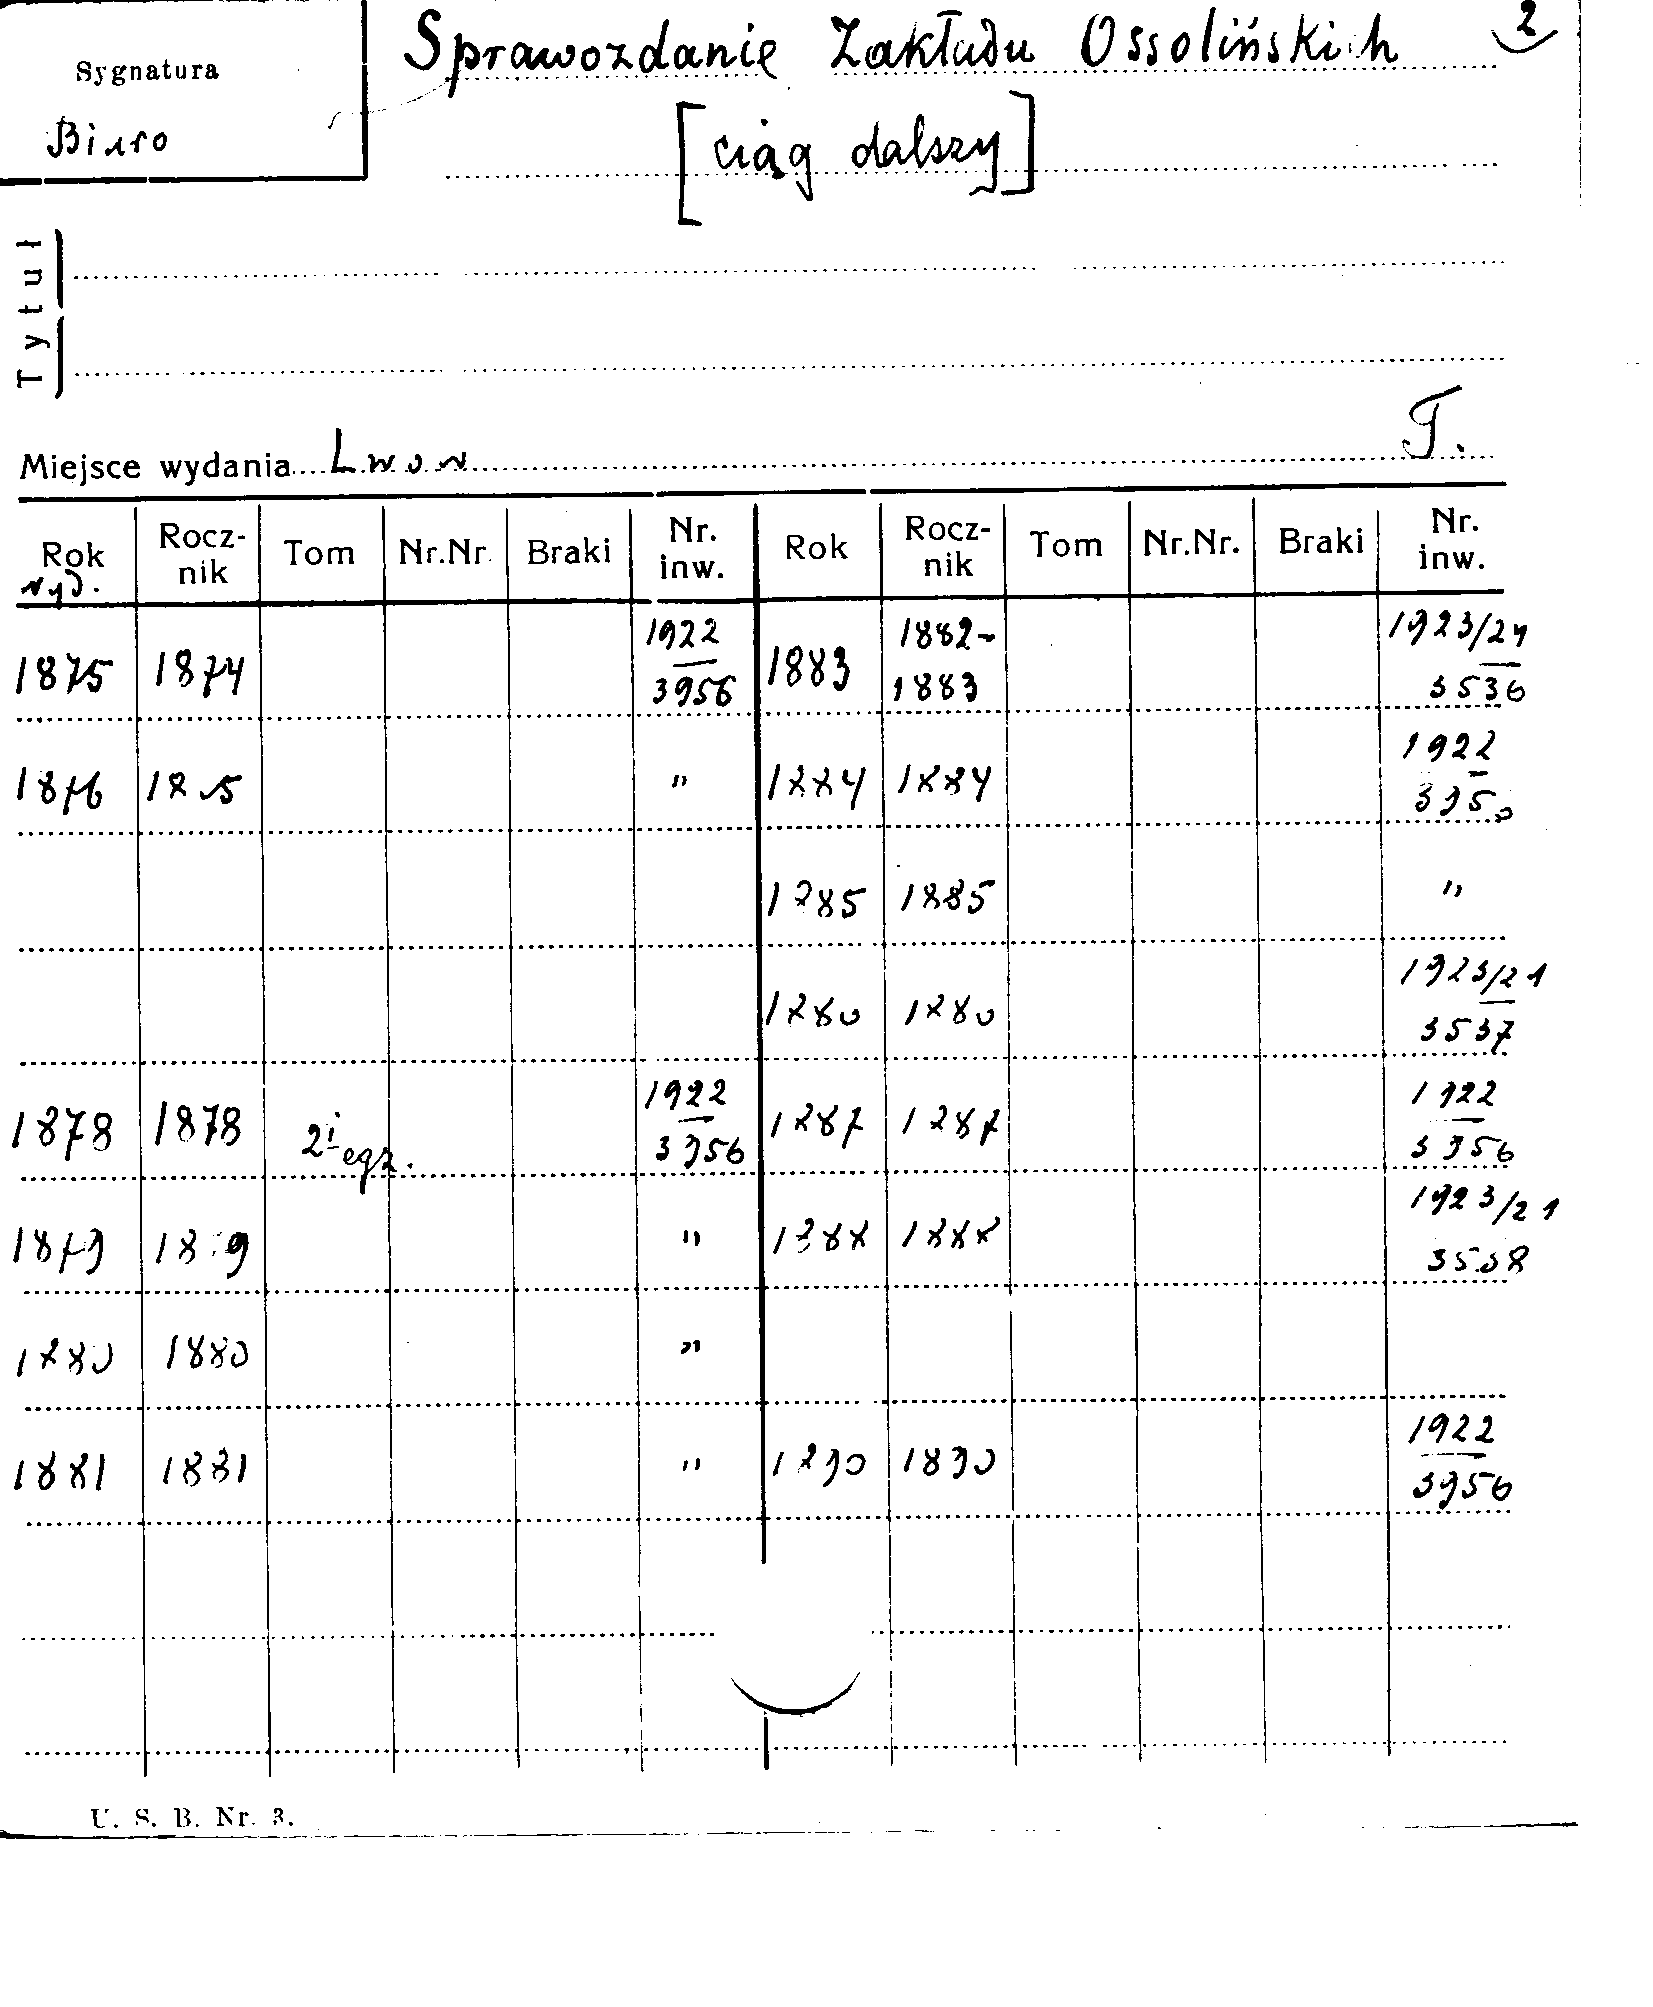 Sprawozdanie Zakładu Ossolińskich 2
Sygnatura
Biuro
[ciąg dalszy]
Tytuł
T.
Miejsce wydania Lwow
Rok wyd. Rocz-nik Tom Nr.Nr. Braki Nr. inw. Rok Rocz-nik Tom Nr.Nr. Braki Nr. inw.
1875 1874 1922/3956 1883 1882-1883 1923/24 3536
1876 18 5 " 1884 1884 1922
1885 1885 "
3537
1878 1878 2i egz. 1922/3956 1887 1887 1922/3956
1879 18 9 " 1888 1888
1880 1880 "
1881 1881 " 1890 1890 1922/3956
U. S. B. Nr. 3.